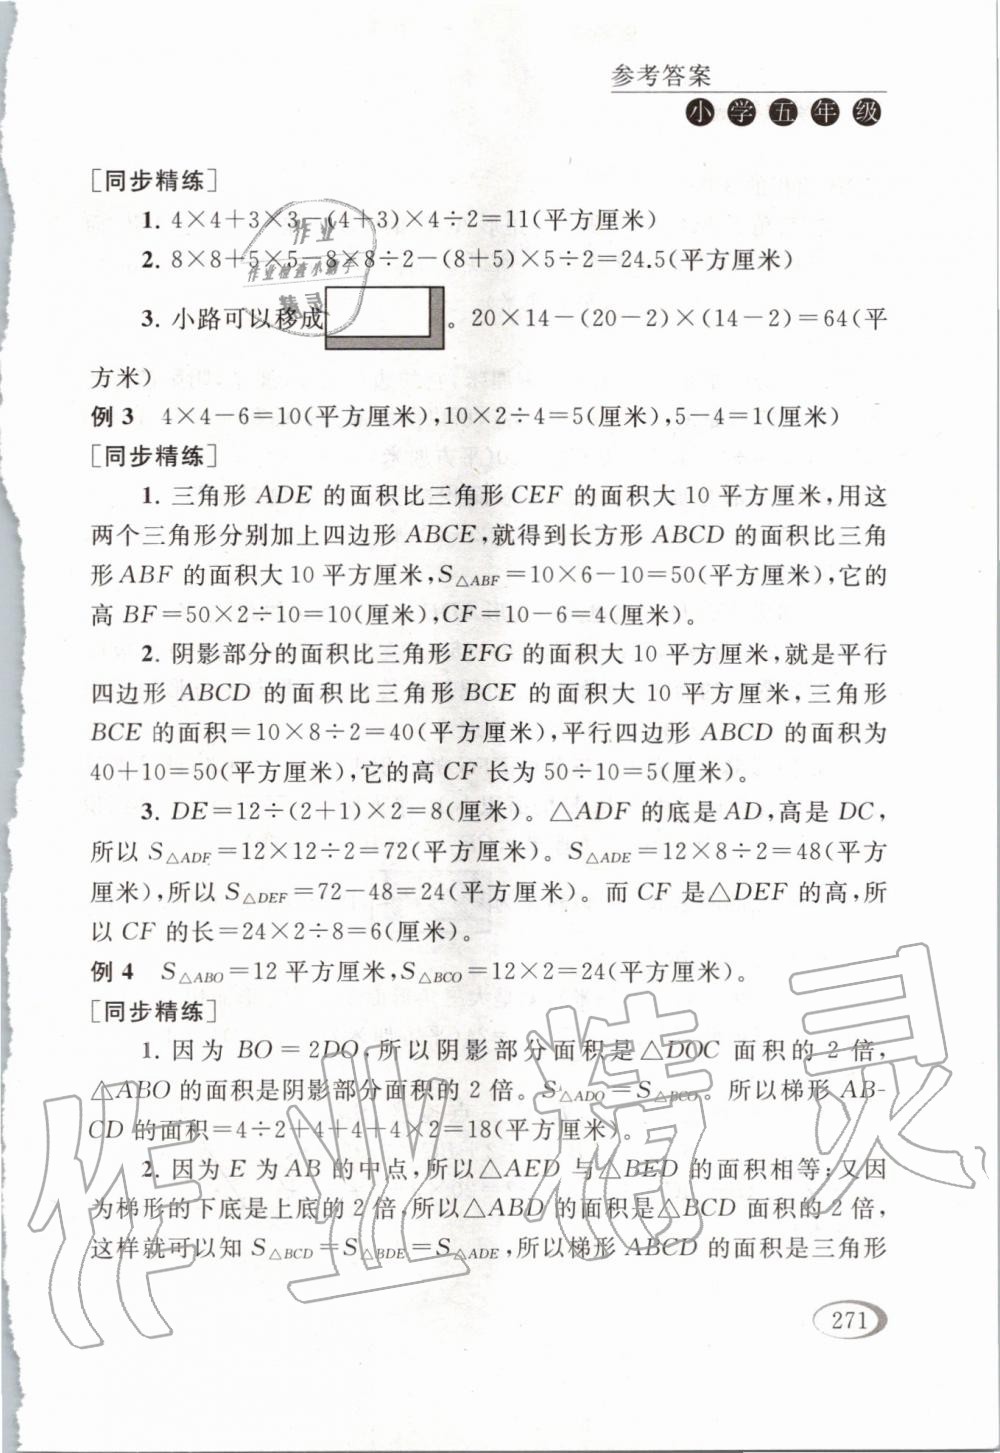 参考答案
小学五年级
[同步精练]
1. 4×4+3×3-(4+3)×4÷2=11(平方厘米)
2. 8×8+5×5-8×8÷2-(8+5)×5÷2=24.5(平方厘米)
3. 小路可以移成 。20×14-(20-2)×(14-2)=64(平
方米)
例3 4×4-6=10(平方厘米),10×2÷4=5(厘米),5-4=1(厘米)
[同步精练]
1. 三角形 ADE 的面积比三角形 CEF 的面积大 10 平方厘米,用这
两个三角形分别加上四边形 ABCE,就得到长方形 ABCD 的面积比三角
形 ABF 的面积大 10 平方厘米,S△ABF=10×6-10=50(平方厘米),它的
高 BF=50×2÷10=10(厘米),CF=10-6=4(厘米)。
2. 阴影部分的面积比三角形 EFG 的面积大 10 平方厘米,就是平行
四边形 ABCD 的面积比三角形 BCE 的面积大 10 平方厘米,三角形
BCE 的面积=10×8÷2=40(平方厘米),平行四边形 ABCD 的面积为
40+10=50(平方厘米),它的高 CF 长为 50÷10=5(厘米)。
3. DE=12÷(2+1)×2=8(厘米)。△ADF 的底是 AD,高是 DC,
所以 S△ADF=12×12÷2=72(平方厘米)。S△ADE=12×8÷2=48(平方
厘米),所以 S△DEF=72-48=24(平方厘米)。而 CF 是△DEF 的高,所
以 CF 的长=24×2÷8=6(厘米)。
例4 S△ABO=12 平方厘米,S△BCO=12×2=24(平方厘米)。
[同步精练]
1. 因为 BO=2DO,所以阴影部分面积是△DOC 面积的 2 倍,
△ABO 的面积是阴影部分面积的 2 倍。S△ADO=S△BCO。所以梯形 AB-
CD 的面积=4÷2+4+4+4×2=18(平方厘米)。
2. 因为 E 为 AB 的中点,所以△AED 与△BED 的面积相等;又因
为梯形的下底是上底的 2 倍,所以△ABD 的面积是△BCD 面积的 2 倍,
这样就可以知 S△BCD=S△BDE=S△ADE,所以梯形 ABCD 的面积是三角形
271
作业
作业检查小帮手
精灵
作业精灵